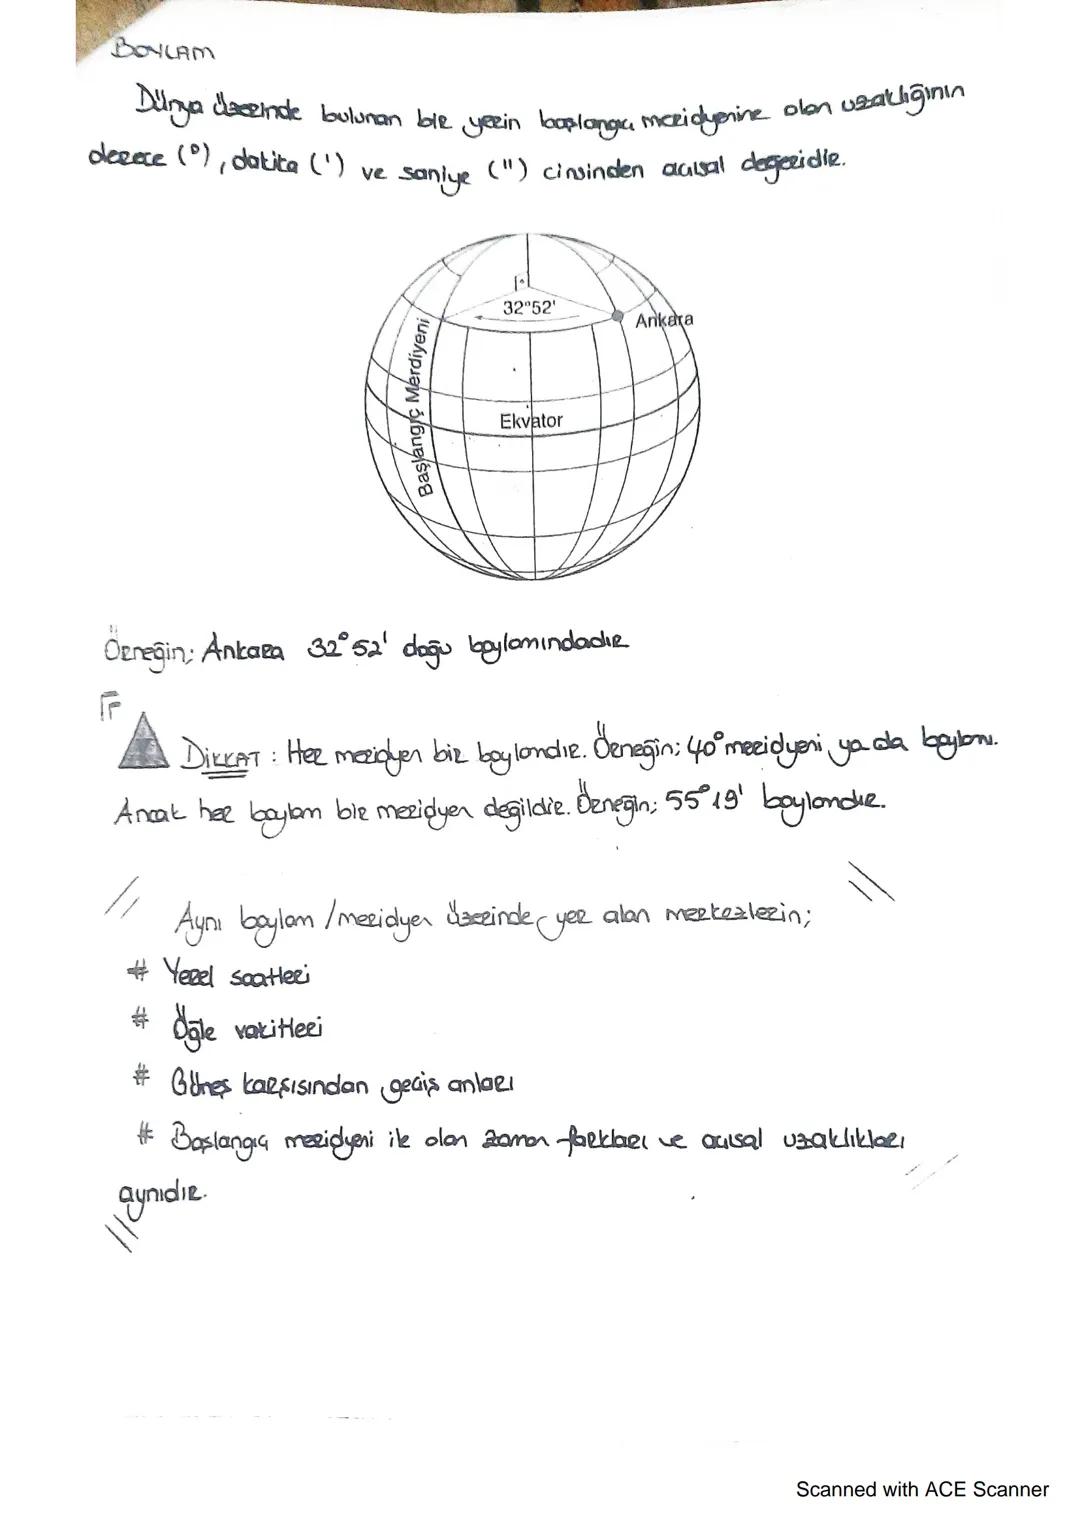 BOYLAM
Dünya üzerinde bulunan bir yerin başlangıç meridyenine olan uzaklığının
derece (°), dakika (') ve saniye (") cinsinden açısal değeridir.
32°52'
Ankara
Başlangıç Merdiyeni
Ekvator
Örneğin; Ankara 32°52' doğu boylamındadır
DİKKAT : Her meridyen bir boylamdır. Örneğin; 40° meridyeni ya da boylamı.
Ancak her boylam bir meridyen değildir. Örneğin; 55°19' boylamdır.
Aynı boylam /meridyen üzerinde yer alan merkezlerin;
# Yerel saatleri
# Öğle vakitleri
# Güneş karşısından geçiş anları
# Başlangıç meridyeni ile olan zaman farkları ve açısal uzaklıkları
aynıdır.
Scanned with ACE Scanner